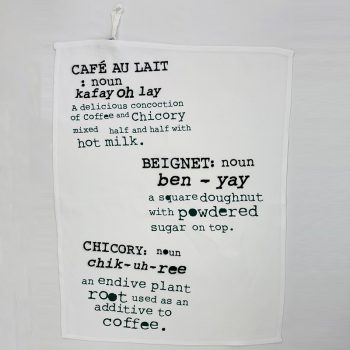 CAFÉ AU LAIT
: noun
kafay oh lay
A delicious concoction
of Coffee and Chicory
mixed half and half with
hot milk.
BEIGNET: noun
ben - yay
a square doughnut
with powdered
sugar on top.
CHICORY: noun
chik-uh-ree
an endive plant
root used as an
additive to
coffee.